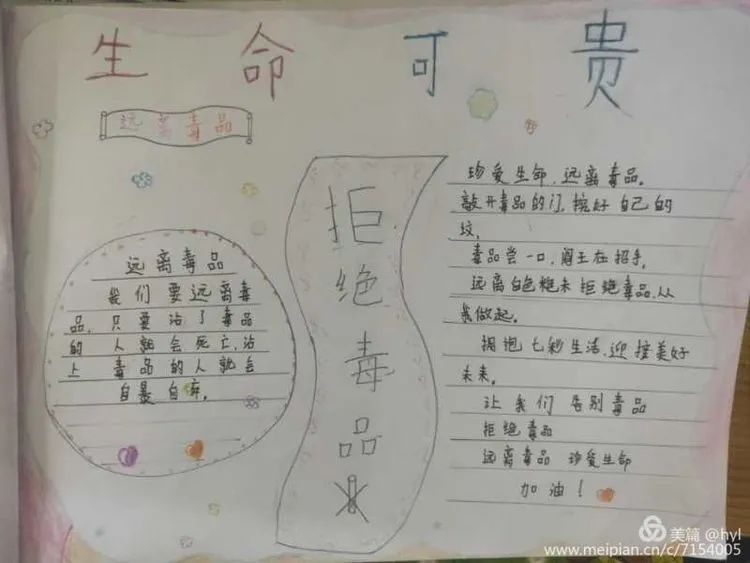 生命可贵
远离毒品
远离毒品
我们要远离毒
品，只要沾了毒品
的人就会死亡，沾
上毒品的人就会
自暴自弃。
拒绝毒品
珍爱生命，远离毒品。
敲开毒品的门，挖好自己的
坟。
毒品尝一口，阎王在招手。
远离白色粉末拒绝毒品，从
我做起。
拥抱七彩生活，迎接美好
未来。
让我们告别毒品
拒绝毒品
远离毒品 珍爱生命
加油！
美篇 @hyl
www.meipian.cn/c/7154005